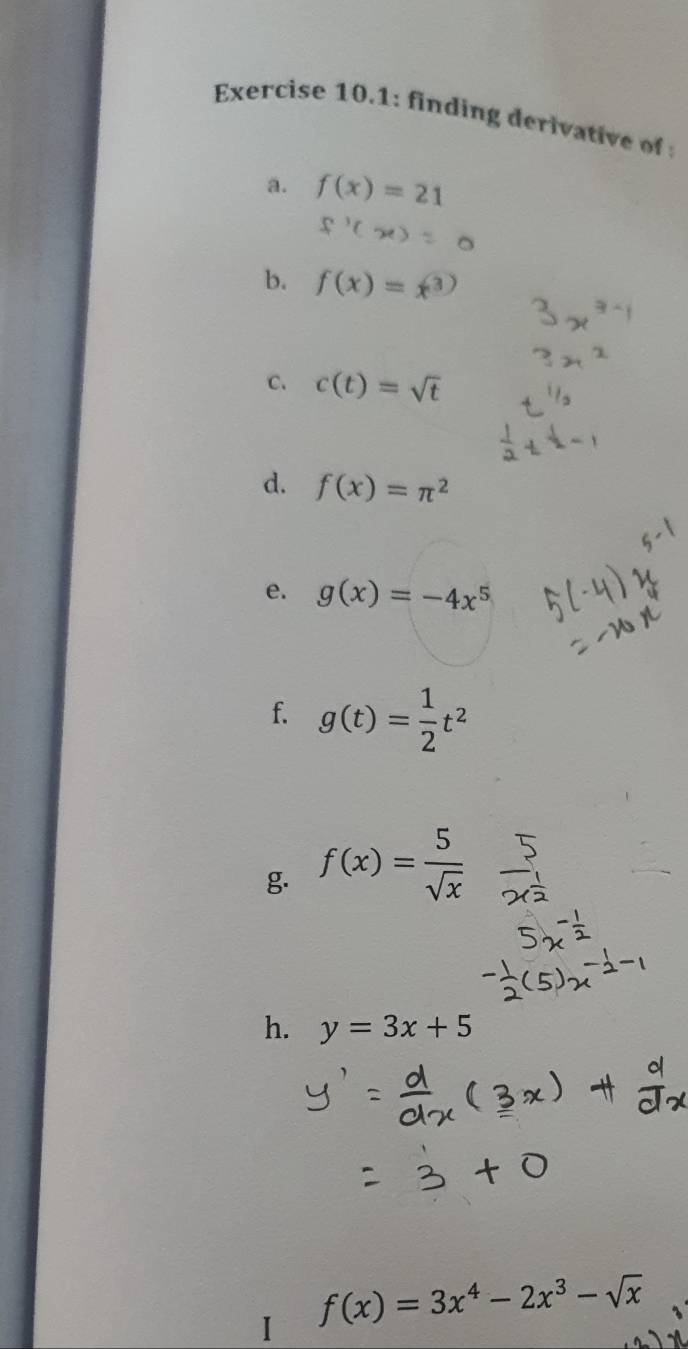 Exercise 10.1: finding derivative of :
a. f(x) = 21
f'(x) = 0
b. f(x) = x³
3x³⁻¹
3x²
c. c(t) = √t
t^1/2
1/2 t^1/2 - 1
d. f(x) = π²
e. g(x) = −4x⁵
5(-4)x⁵⁻¹
= -20x⁴
f. g(t) = 1/2 t²
g. f(x) = 5/√x
5/x^1/2
5x^-1/2
-1/2(5)x^-1/2-1
h. y = 3x + 5
y' = d/dx (3x) + d/dx
= 3 + 0
I f(x) = 3x⁴ − 2x³ − √x